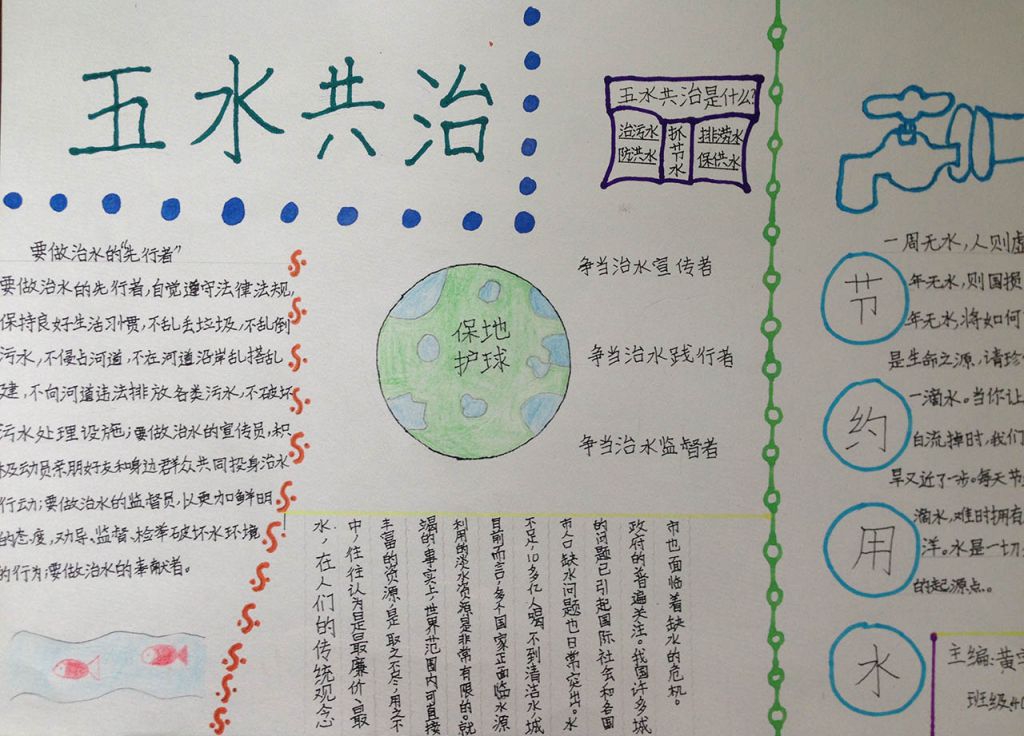 五水共治
五水共治是什么?
治污水
防洪水
抓节水
排涝水
保供水
要做治水的“先行者”
要做治水的先行者,自觉遵守法律法规,
保持良好生活习惯,不乱丢垃圾,不乱倒
污水,不侵占河道,不在河道沿岸乱搭乱
建,不向河道违法排放各类污水,不破坏
污水处理设施;要做治水的宣传员,积
极动员亲朋好友和身边群众共同投身治水
行动;要做治水的监督员,以更加鲜明
的态度,劝导、监督、检举破坏水环境
的行为;要做治水的奉献者。
保地
护球
争当治水宣传者
争当治水践行者
争当治水监督者
水,在人们的传统观念
中,往往认为是最廉价、最
丰富的资源,是取之不尽,用之不
竭的事实上,世界范围内可直接
利用的淡水资源是非常有限的。就
目前而言,多个国家正面临水源
不足,10多亿人喝不到清洁水,城
市人口缺水问题也日常突出。水
的问题已引起国际社会和各国
政府的普遍关注。我国许多城
市也面临着缺水的危机。
节约用水
一周无水,人则虚
年无水,则国损
年无水,将如何
是生命之源,请珍
一滴水。当你让
白流掉时,我们
旱又近了一步。每天节
滴水,难时拥有
洋。水是一切
的起源点。
主编:黄
班级: